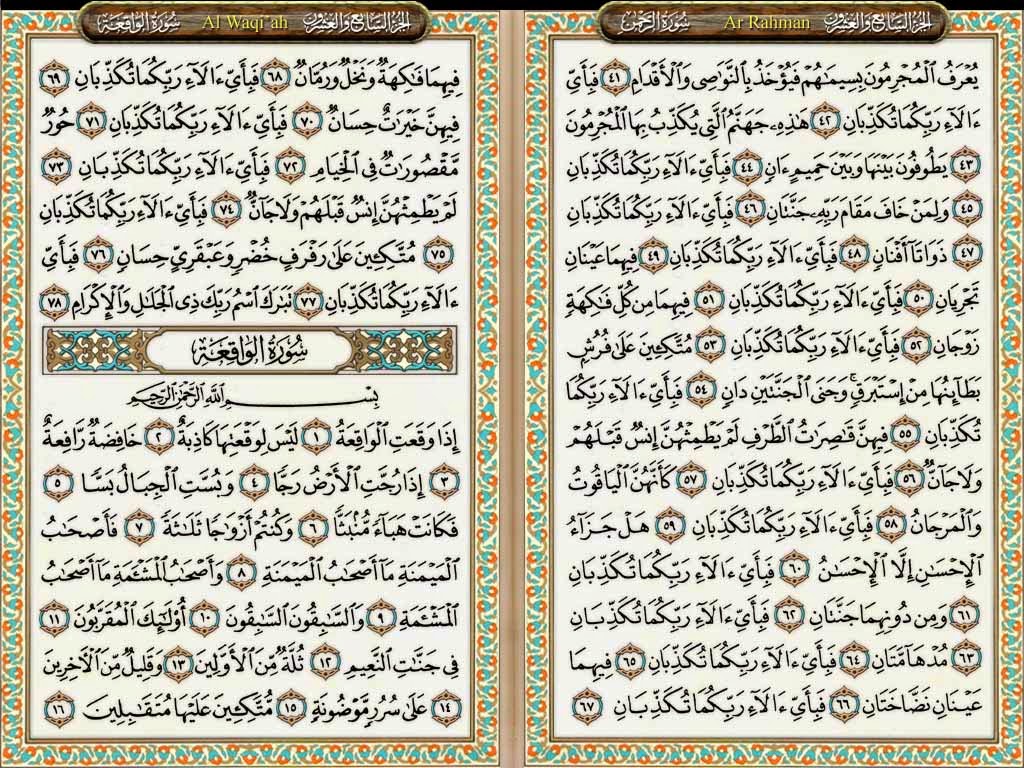 الجزء السابع والعشرون Ar Rahman سورة الرحمن
يُعْرَفُ الْمُجْرِمُونَ بِسِيمَٰهُمْ فَيُؤْخَذُ بِالنَّوَٰصِي وَالْأَقْدَامِ ٤١ فَبِأَيِّ
ءَالَآءِ رَبِّكُمَا تُكَذِّبَانِ ٤٢ هَٰذِهِۦ جَهَنَّمُ الَّتِي يُكَذِّبُ بِهَا الْمُجْرِمُونَ
٤٣ يَطُوفُونَ بَيْنَهَا وَبَيْنَ حَمِيمٍ ءَانٍ ٤٤ فَبِأَيِّ ءَالَآءِ رَبِّكُمَا تُكَذِّبَانِ
٤٥ وَلِمَنْ خَافَ مَقَامَ رَبِّهِۦ جَنَّتَانِ ٤٦ فَبِأَيِّ ءَالَآءِ رَبِّكُمَا تُكَذِّبَانِ
٤٧ ذَوَاتَآ أَفْنَانٍ ٤٨ فَبِأَيِّ ءَالَآءِ رَبِّكُمَا تُكَذِّبَانِ ٤٩ فِيهِمَا عَيْنَانِ
تَجْرِيَانِ ٥٠ فَبِأَيِّ ءَالَآءِ رَبِّكُمَا تُكَذِّبَانِ ٥١ فِيهِمَا مِن كُلِّ فَٰكِهَةٍ
زَوْجَانِ ٥٢ فَبِأَيِّ ءَالَآءِ رَبِّكُمَا تُكَذِّبَانِ ٥٣ مُتَّكِـِٔينَ عَلَىٰ فُرُشٍۭ
بَطَآئِنُهَا مِنْ إِسْتَبْرَقٍ ۚ وَجَنَى الْجَنَّتَيْنِ دَانٍ ٥٤ فَبِأَيِّ ءَالَآءِ رَبِّكُمَا
تُكَذِّبَانِ ٥٥ فِيهِنَّ قَٰصِرَٰتُ الطَّرْفِ لَمْ يَطْمِثْهُنَّ إِنسٌ قَبْلَهُمْ
وَلَا جَآنٌّ ٥٦ فَبِأَيِّ ءَالَآءِ رَبِّكُمَا تُكَذِّبَانِ ٥٧ كَأَنَّهُنَّ الْيَاقُوتُ
وَالْمَرْجَانُ ٥٨ فَبِأَيِّ ءَالَآءِ رَبِّكُمَا تُكَذِّبَانِ ٥٩ هَلْ جَزَآءُ
الْإِحْسَٰنِ إِلَّا الْإِحْسَٰنُ ٦٠ فَبِأَيِّ ءَالَآءِ رَبِّكُمَا تُكَذِّبَانِ
٦١ وَمِن دُونِهِمَا جَنَّتَانِ ٦٢ فَبِأَيِّ ءَالَآءِ رَبِّكُمَا تُكَذِّبَانِ
٦٣ مُدْهَآمَّتَانِ ٦٤ فَبِأَيِّ ءَالَآءِ رَبِّكُمَا تُكَذِّبَانِ ٦٥ فِيهِمَا
عَيْنَانِ نَضَّاخَتَانِ ٦٦ فَبِأَيِّ ءَالَآءِ رَبِّكُمَا تُكَذِّبَانِ ٦٧
الجزء السابع والعشرون Al Waqi'ah سورة الواقعة
فِيهِمَا فَٰكِهَةٌ وَنَخْلٌ وَرُمَّانٌ ٦٨ فَبِأَيِّ ءَالَآءِ رَبِّكُمَا تُكَذِّبَانِ ٦٩
فِيهِنَّ خَيْرَٰتٌ حِسَانٌ ٧٠ فَبِأَيِّ ءَالَآءِ رَبِّكُمَا تُكَذِّبَانِ ٧١ حُورٌ
مَّقْصُورَٰتٌ فِي الْخِيَامِ ٧٢ فَبِأَيِّ ءَالَآءِ رَبِّكُمَا تُكَذِّبَانِ ٧٣
لَمْ يَطْمِثْهُنَّ إِنسٌ قَبْلَهُمْ وَلَا جَآنٌّ ٧٤ فَبِأَيِّ ءَالَآءِ رَبِّكُمَا تُكَذِّبَانِ
٧٥ مُتَّكِـِٔينَ عَلَىٰ رَفْرَفٍ خُضْرٍ وَعَبْقَرِيٍّ حِسَانٍ ٧٦ فَبِأَيِّ
ءَالَآءِ رَبِّكُمَا تُكَذِّبَانِ ٧٧ تَبَٰرَكَ اسْمُ رَبِّكَ ذِي الْجَلَٰلِ وَالْإِكْرَامِ ٧٨
سُورَةُ الْوَاقِعَةِ
بِسْمِ اللَّهِ الرَّحْمَٰنِ الرَّحِيمِ
إِذَا وَقَعَتِ الْوَاقِعَةُ ١ لَيْسَ لِوَقْعَتِهَا كَاذِبَةٌ ٢ خَافِضَةٌ رَّافِعَةٌ
٣ إِذَا رُجَّتِ الْأَرْضُ رَجًّا ٤ وَبُسَّتِ الْجِبَالُ بَسًّا ٥
فَكَانَتْ هَبَآءً مُّنۢبَثًّا ٦ وَكُنتُمْ أَزْوَٰجًا ثَلَٰثَةً ٧ فَأَصْحَٰبُ
الْمَيْمَنَةِ مَآ أَصْحَٰبُ الْمَيْمَنَةِ ٨ وَأَصْحَٰبُ الْمَشْـَٔمَةِ مَآ أَصْحَٰبُ
الْمَشْـَٔمَةِ ٩ وَالسَّٰبِقُونَ السَّٰبِقُونَ ١٠ أُو۟لَٰٓئِكَ الْمُقَرَّبُونَ ١١
فِي جَنَّٰتِ النَّعِيمِ ١٢ ثُلَّةٌ مِّنَ الْأَوَّلِينَ ١٣ وَقَلِيلٌ مِّنَ الْءَاخِرِينَ
١٤ عَلَىٰ سُرُرٍ مَّوْضُونَةٍ ١٥ مُّتَّكِـِٔينَ عَلَيْهَا مُتَقَٰبِلِينَ ١٦